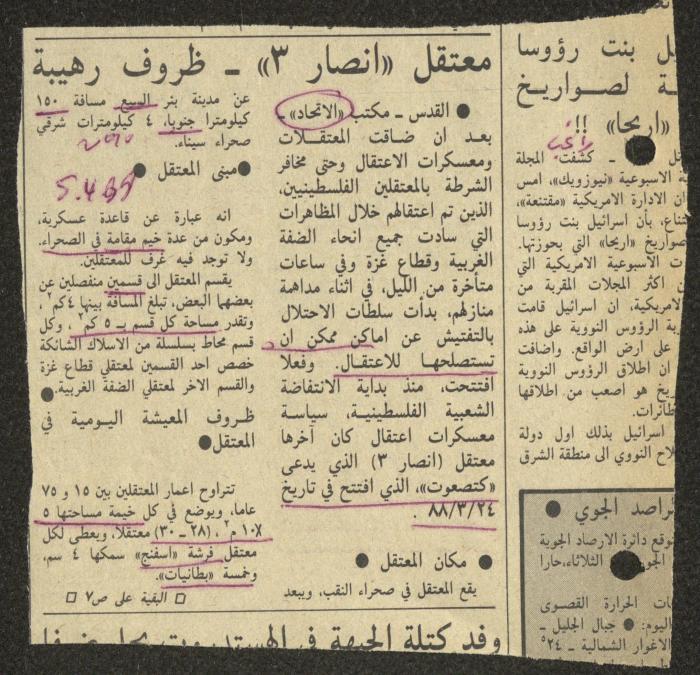 معتقل «انصار ٣» ـ ظروف رهيبة
● القدس ـ مكتب «الاتحاد» ـ
بعد ان ضاقت المعتقلات
ومعسكرات الاعتقال وحتى مخافر
الشرطة بالمعتقلين الفلسطينيين،
الذين تم اعتقالهم خلال المظاهرات
التي سادت جميع انحاء الضفة
الغربية وقطاع غزة وفي ساعات
متأخرة من الليل، في اثناء مداهمة
منازلهم، بدأت سلطات الاحتلال
بالتفتيش عن اماكن ممكن ان
تستصلحها للاعتقال. وفعلا
افتتحت، منذ بداية الانتفاضة
الشعبية الفلسطينية، سياسة
معسكرات اعتقال كان آخرها
معتقل (انصار ٣) الذي يدعى
«كتصعوت»، الذي افتتح في تاريخ
٨٨/٣/٢٤ .
● مكان المعتقل ●
يقع المعتقل في صحراء النقب، ويبعد
عن مدينة بئر السبع مسافة ١٥٠
كيلومترا جنوبا، ٤ كيلومترات شرقي
صحراء سيناء.
●مبنى المعتقل ●
5.4.88
انه عبارة عن قاعدة عسكرية،
ومكون من عدة خيم مقامة في الصحراء.
ولا توجد فيه غرف للمعتقلين.
يقسم المعتقل الى قسمين منفصلين عن
بعضهما البعض، تبلغ المسافة بينها ٤ كم٢،
وتقدر مساحة كل قسم بـ ٥ كم٢، وكل
قسم محاط بسلسلة من الاسلاك الشائكة
خصص احد القسمين لمعتقلي قطاع غزة
والقسم الاخر لمعتقلي الضفة الغربية.
● ظروف المعيشة اليومية في
المعتقل●
تتراوح اعمار المعتقلين بين ١٥ و ٧٥
عاما، ويوضع في كل خيمة مساحتها ٥
١٠x م٢، (٢٨ ـ ٣٠) معتقلا، ويعطى لكل
معتقل فرشة «اسفنج» سمكها ٤ سم،
وخمسة «بطانيات».
□ البقية على ص٧ □
وفد كتلة الجبهة في
ل بنت رؤوسا
ة لصواريخ
«اريحا» !!
ـ كشفت المجلة
ة الاسبوعية «نيوزويك»، امس
ان الادارة الامريكية «مقتنعة»،
تناع، بأن اسرائيل بنت رؤوسا
صواريخ «اريحا» التي بحوزتها.
ت الاسبوعية الامريكية التي
ن اكثر المجلات المقربة من
لامريكية، ان اسرائيل قامت
ة الرؤوس النووية على هذه
على ارض الواقع. واضافت
ان اطلاق الرؤوس النووية
ريخ هو اصعب من اطلاقها
طائرات.
اسرائيل بذلك اول دولة
لاح النووي الى منطقة الشرق
لراصد الجوي ●
توقع دائرة الارصاد الجوية
الثلاثاء، حارا
ات الحرارة القصوى
اليوم: ● جبال الجليل ـ
الاغوار الشمالية ـ ٢٤°